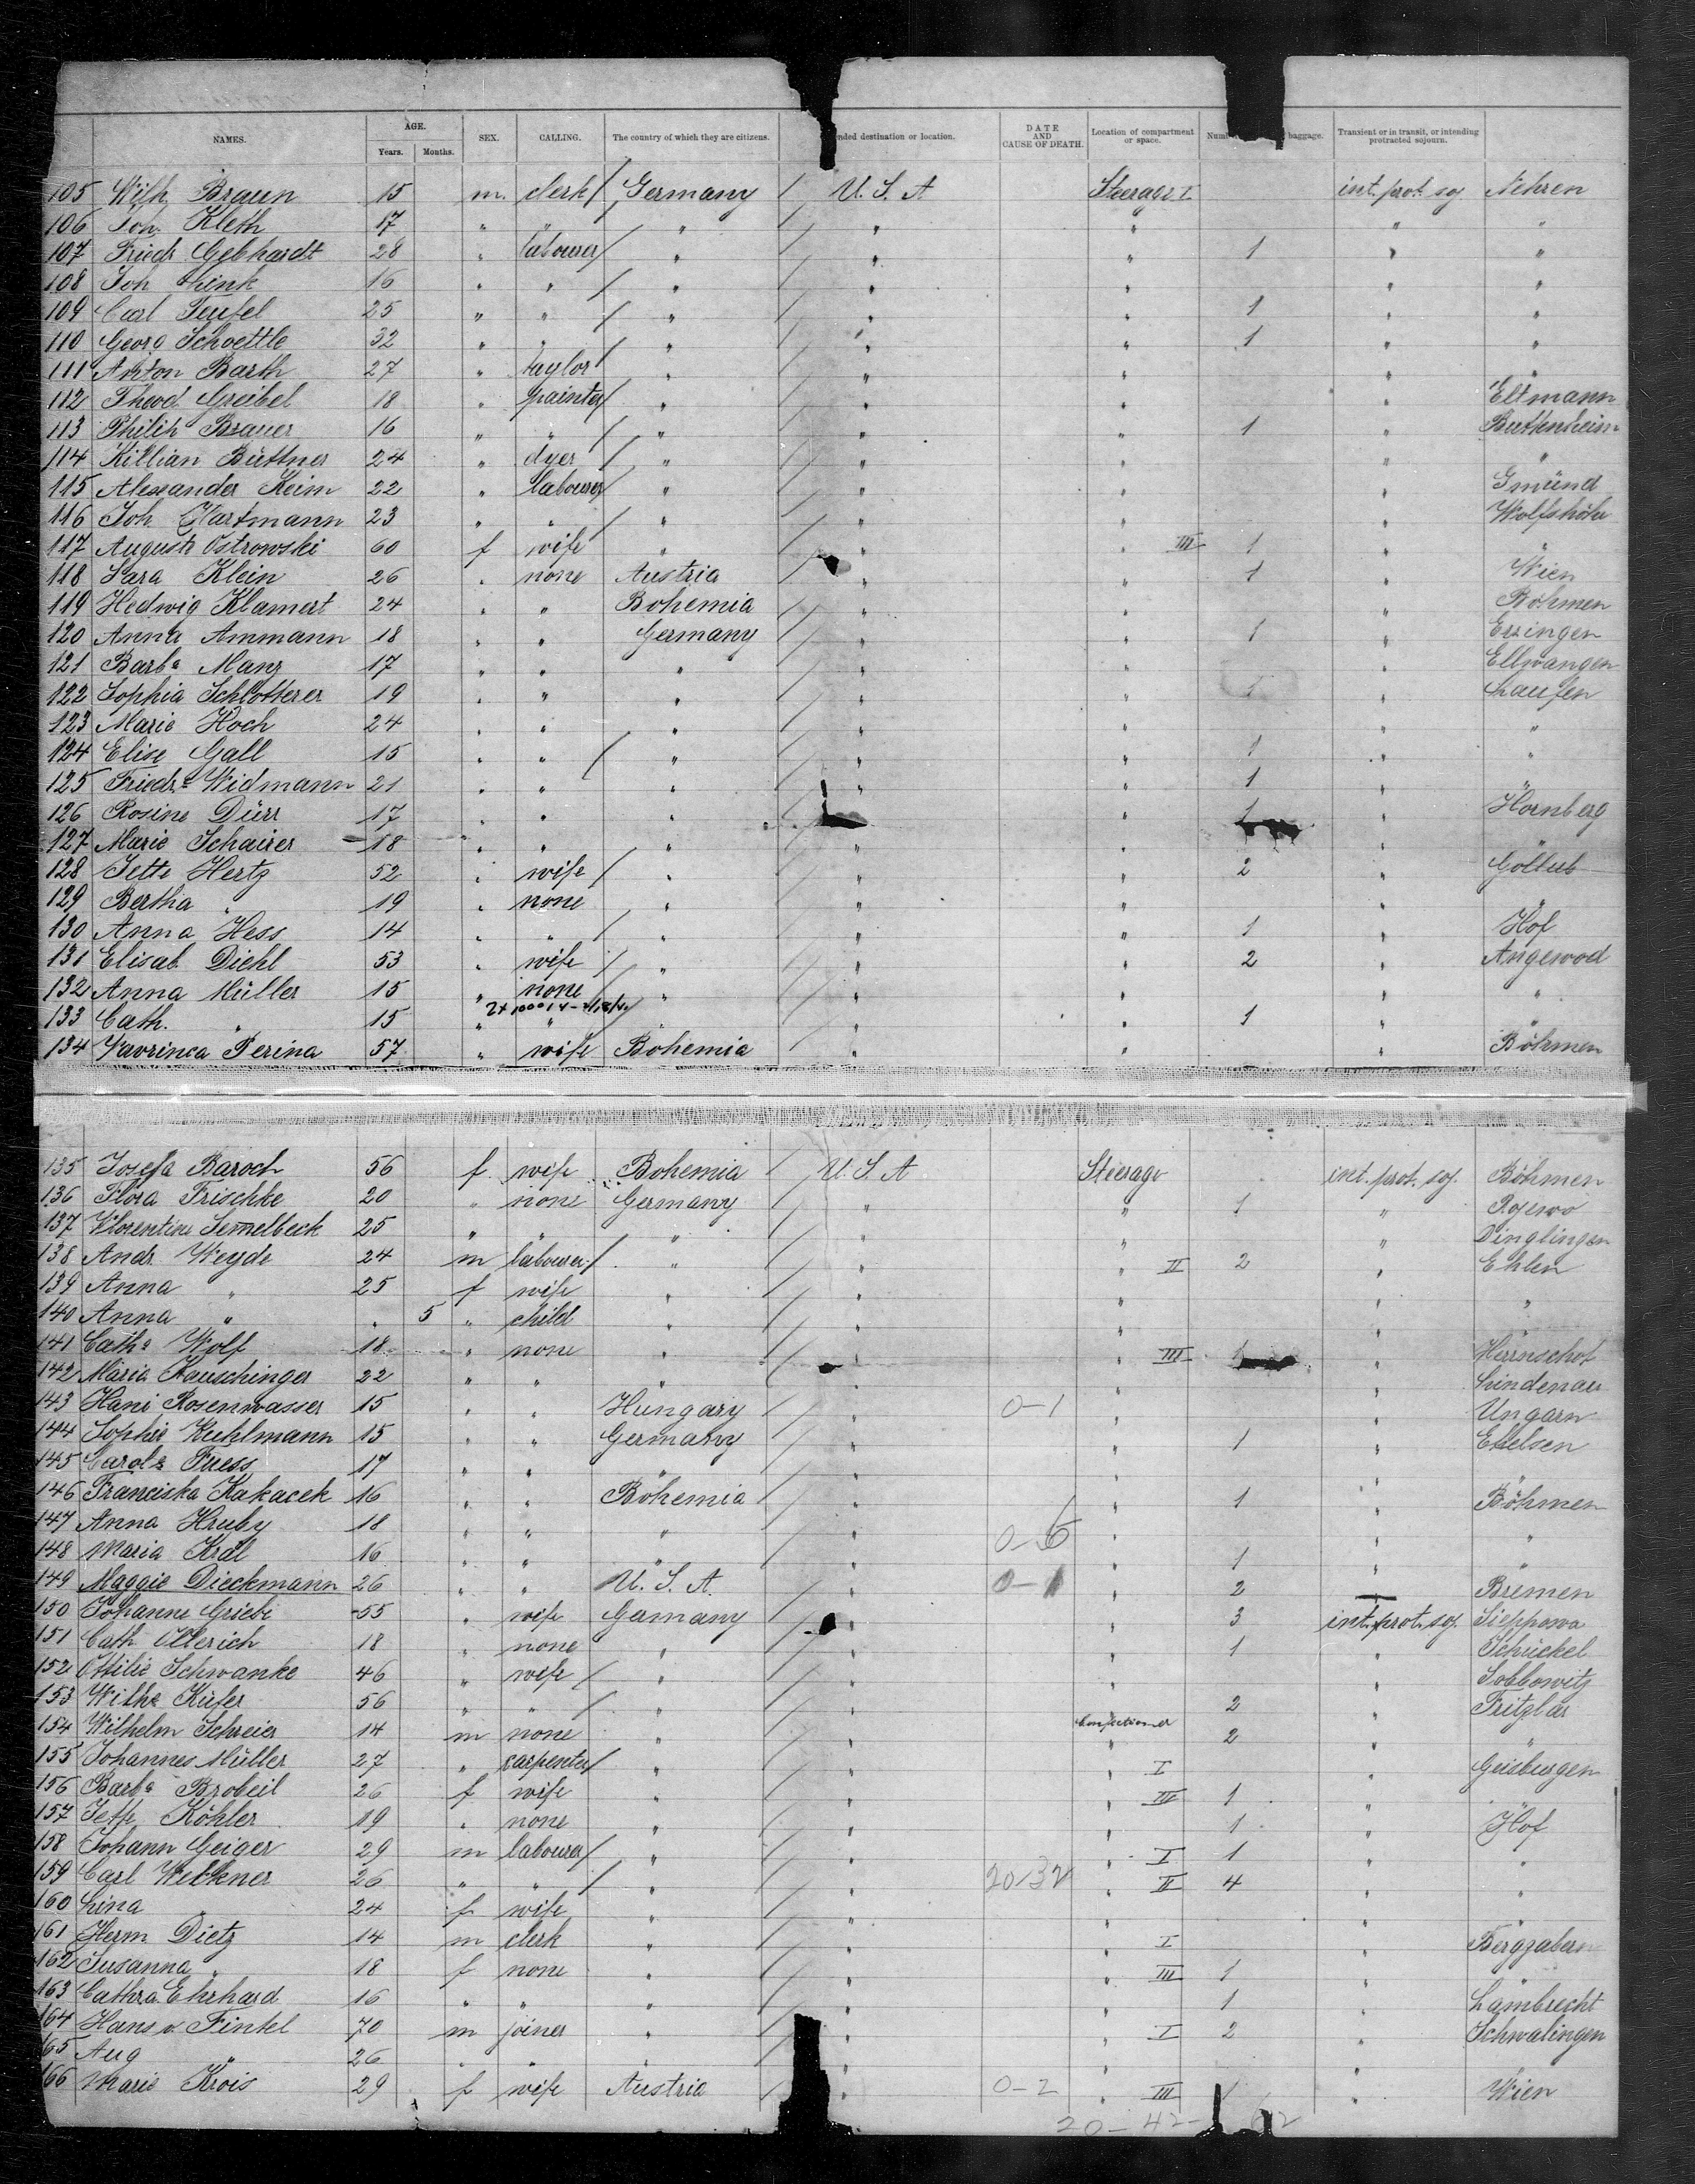 NAMES. AGE. Years. Months. SEX. CALLING. The country of which they are citizens. nded destination or location. DATE AND CAUSE OF DEATH. Location of compartment or space. Num baggage. Transient or in transit, or intending protracted sojourn.
105 Wilh. Braun 15 m. clerk Germany U. S. A Steerage I int. prot. soj Nehren
106 Joh. Kleth 17 " " " " " " "
107 Friedr. Gebhardt 28 " labourer " " " 1 " "
108 Joh Link 16 " " " " " " "
109 Carl Teufel 25 " " " " " 1 " "
110 Georg Schoettle 32 " " " " " 1 " "
111 Anton Barth 27 " taylor " " " " "
112 Theod. Greibel 18 " painter " " " " Eltmann
113 Philip Brauer 16 " " " " " 1 " Buttenheim
114 Killian Büttner 24 " dyer " " " " "
115 Alexander Keim 22 " labourer " " " " Gmünd
116 Joh Hartmann 23 " " " " " " Wolfshöhe
117 Auguste Ostrowski 60 f wife " " " III 1 " "
118 Sara Klein 26 " none Austria " " 1 " Wien
119 Hedwig Klamert 24 " " Bohemia " " " Böhmen
120 Anna Ammann 18 " " Germany " " 1 " Essingen
121 Barba Manz 17 " " " " " " Ellwangen
122 Sophia Schlotterer 19 " " " " " 1 " Laufen
123 Marie Hoch 24 " " " " " " "
124 Elise Gall 15 " " " " " 1 " "
125 Friedr. Widmann 21 " " " " " 1 " "
126 Rosine Dürr 17 " " " " " 1 " Hornberg
127 Marie Schairer 18 " " " " " " "
128 Jette Hertz 52 " wife " " " 2 " Gollub
129 Bertha " 19 " none " " " " "
130 Anna Hess 14 " " " " " 1 " Hof
131 Elisab. Diehl 53 " wife " " " 2 " Angerod
132 Anna Müller 15 " none " " " " "
133 Cath. " 15 " " " " " 1 " "
134 Vavrinca Perina 57 " wife Bohemia " " " Böhmen
135 Josefa Baroch 56 f. wife Bohemia U. S. A Steerage int. prot. soj. Böhmen
136 Flora Frischke 20 " none Germany " " 1 " Rojewo
137 Florentine Semelbeck 25 " " " " " " Dinglingen
138 Andr. Weyde 24 m labourer " " " II 2 " Ehlen
139 Anna " 25 f wife " " " "
140 Anna " " 5 " child " " "
141 Catha Wolf 18 " none " " " III 1 " Herrnschot
142 Maria Hauschinger 22 " " " " " " Lindenau
143 Hani Rosenwasser 15 " " Hungary " 0-1 " " Ungarn
144 Sophie Kuhlmann 15 " " Germany " " 1 " Etelsen
145 Carola Fuess 17 " " " " " "
146 Franciska Kakacek 16 " " Bohemia " " 1 " Böhmen
147 Anna Hruby 18 " " " " 0-6 " " "
148 Maria Kral 16 " " " " " 1 " "
149 Maggie Dieckmann 26 " " U. S. A. " 0-1 " 2 — Bremen
150 Johanne Griebe 55 " wife Germany " " 3 int. prot. soj. Sieppowa
151 Cath Ollerich 18 " none " " " 1 " Schickel
152 Ottilie Schwanke 46 " wife " " " " Sobbowitz
153 Wilhe Küfer 56 " " " " " 2 " Fritzlar
154 Wilhelm Schreier 14 m none " " confectioner " 2 " "
155 Johannes Müller 27 " carpenter " " " I " Geisburgen
156 Barba Brobeil 26 f wife " " " III 1 " "
157 Jette Köhler 19 " none " " " 1 " Hof
158 Johann Geiger 29 m labourer " " " I 1 " "
159 Carl Welkner 26 " " " " 20/32 " II 4 " "
160 Lina " 24 f wife " " " " "
161 Herm Dietz 14 m clerk " " " I " Bergzabern
162 Susanna " 18 f none " " " III 1 " "
163 Cathra Ehrhard 16 " " " " " 1 " Lambrecht
164 Hans v. Fintel 70 m joiner " " " I 2 " Schwalingen
65 Aug " 26 " " " " " " "
66 Marie Krois 29 f wife Austria " 0-2 " III 1 " Wien